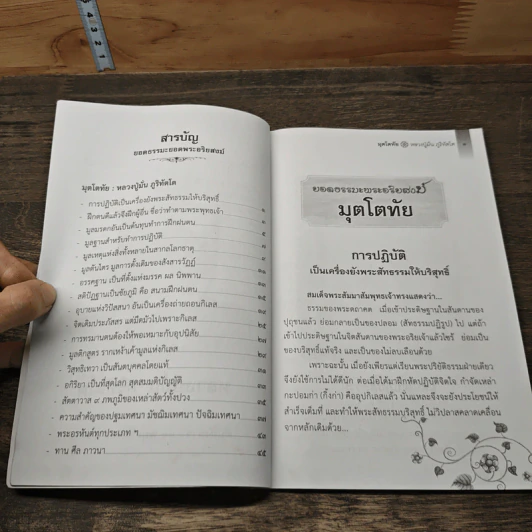 สารบัญ
ยอดธรรมะยอดพระอริยสงฆ์
มุตโตทัย : หลวงปู่มั่น ภูริทัตโต
- การปฏิบัติเป็นเครื่องยังพระสัทธรรมให้บริสุทธิ์ ๑
- ฝึกตนดีแล้วจึงฝึกผู้อื่น ชื่อว่าทำตามพระพุทธเจ้า
- มูลมรดกอันเป็นต้นทุนทำการฝึกฝนตน
- มูลฐานสำหรับทำการปฏิบัติ
- มูลเหตุแห่งสิ่งทั้งหลายในสากลโลกธาตุ
- มูลต้นไตร มูลการตั้งเดิมของสังสารวัฏฏ์
- อรรคฐาน เป็นที่ตั้งแห่งมรรค ผล นิพพาน
- สติปัฏฐานเป็นชัยภูมิ คือ สนามฝึกฝนตน
- อุบายแห่งวิปัสสนา อันเป็นเครื่องถ่ายถอนกิเลส
- จิตเดิมประภัสสร แต่มืดมัวไปเพราะกิเลส
- การทรมานตนต้องให้พอเหมาะกับอุปนิสัย
- มูลติกสูตร รากเหง้าเค้ามูลแห่งกิเลส
- วิสุทธิเทวา เป็นสันตบุคคลโดยแท้
- อกิริยา เป็นที่สุดโลก สุดสมมติบัญญัติ
- สัตตาวาส ๙ ภพภูมิของเหล่าสัตว์ทั้งปวง
- ความสำคัญของปฐมเทศนา มัชฌิมเทศนา ปัจฉิมเทศนา
- พระอรหันต์ทุกประเภท ฯ ๔๓
- ทาน ศีล ภาวนา ๔๕
มุตโตทัย หลวงปู่มั่น ภูริทัตโต
ยอดธรรมะพระอริยสงฆ์
มุตโตทัย
การปฏิบัติ
เป็นเครื่องยังพระสัทธรรมให้บริสุทธิ์
สมเด็จพระสัมมาสัมพุทธเจ้าทรงแสดงว่า...
ธรรมของพระตถาคต เมื่อเข้าประดิษฐานในสันดานของ
ปุถุชนแล้ว ย่อมกลายเป็นของปลอม (สัทธรรมปฏิรูป) ไป แต่ถ้า
เข้าไปประดิษฐานในจิตสันดานของพระอริยเจ้าแล้วไซร้ ย่อมเป็น
ของบริสุทธิ์แท้จริง และเป็นของไม่ลบเลือนด้วย
เพราะฉะนั้น เมื่อยังเพียรแต่เรียนพระปริยัติธรรมฝ่ายเดียว
จึงยังใช้การไม่ได้ดีนัก ต่อเมื่อได้มาฝึกหัดปฏิบัติจิตใจ กำจัดเหล่า
กะปอมก่า (กิ้งก่า) คืออุปกิเลสแล้ว นั่นแหละจึงจะยังประโยชน์ให้
สำเร็จเต็มที่ และทำให้พระสัทธรรมบริสุทธิ์ ไม่วิปลาสคลาดเคลื่อน
จากหลักเดิมด้วย...